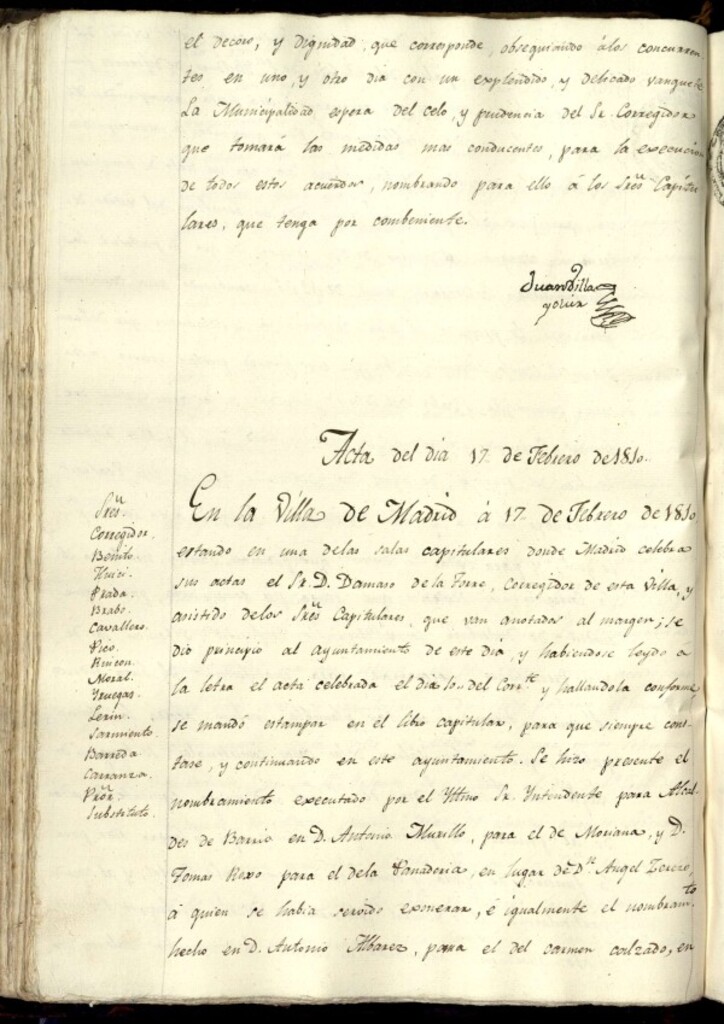 el decoro, y Dignidad, que corresponde, obsequiando á los concurren
tes en uno, y otro dia con un explendido, y delicado vanquete
La Municipalidad espera del celo, y prudencia del Sr. Corregidor
que tomará las medidas mas conducentes, para la execucion
de todos estos acuerdos, nombrando para ello á los Sres. Capitu
lares, que tenga por combeniente.
Juan Villa
y Olier
Acta del dia 17 de Febrero de 1810.
Sres.
Corregidor.
Benito.
Huici.
Prada.
Brabo.
Cavallero.
Pico.
Rincon.
Moral.
Yruegas.
Lerin.
Sarmiento.
Barreda.
Carranza.
Pror.
Substituto.
En la Villa de Madrid á 17 de Febrero de 1810
estando en una delas salas capitulares donde Madrid celebra
sus actas el Sr. D. Damaso de la Torre, Corregidor de esta Villa, y
asistido delos Sres Capitulares, que van anotados al margen; se
dio principio al ayuntamiento de este dia, y habiendose leydo á
la letra el acta celebrada el dia 10.. del Corrte. y hallandola conforme
se mandó estampar en el libro capitular, para que siempre cons
tase, y continuando en este ayuntamiento. Se hizo presente el
nombramiento executado por el Yltmo Sr. Yntendente para Alcal
des de Barrio en D. Antonio Murillo, para el de Moriana, y D.
Tomas Roxo para el dela Panaderia, en lugar de Dn. Angel Terero,
á quien se habia servido exonerar, é igualmente el nombramto
hecho en D. Antonio Albarez, para el del carmen calzado, en